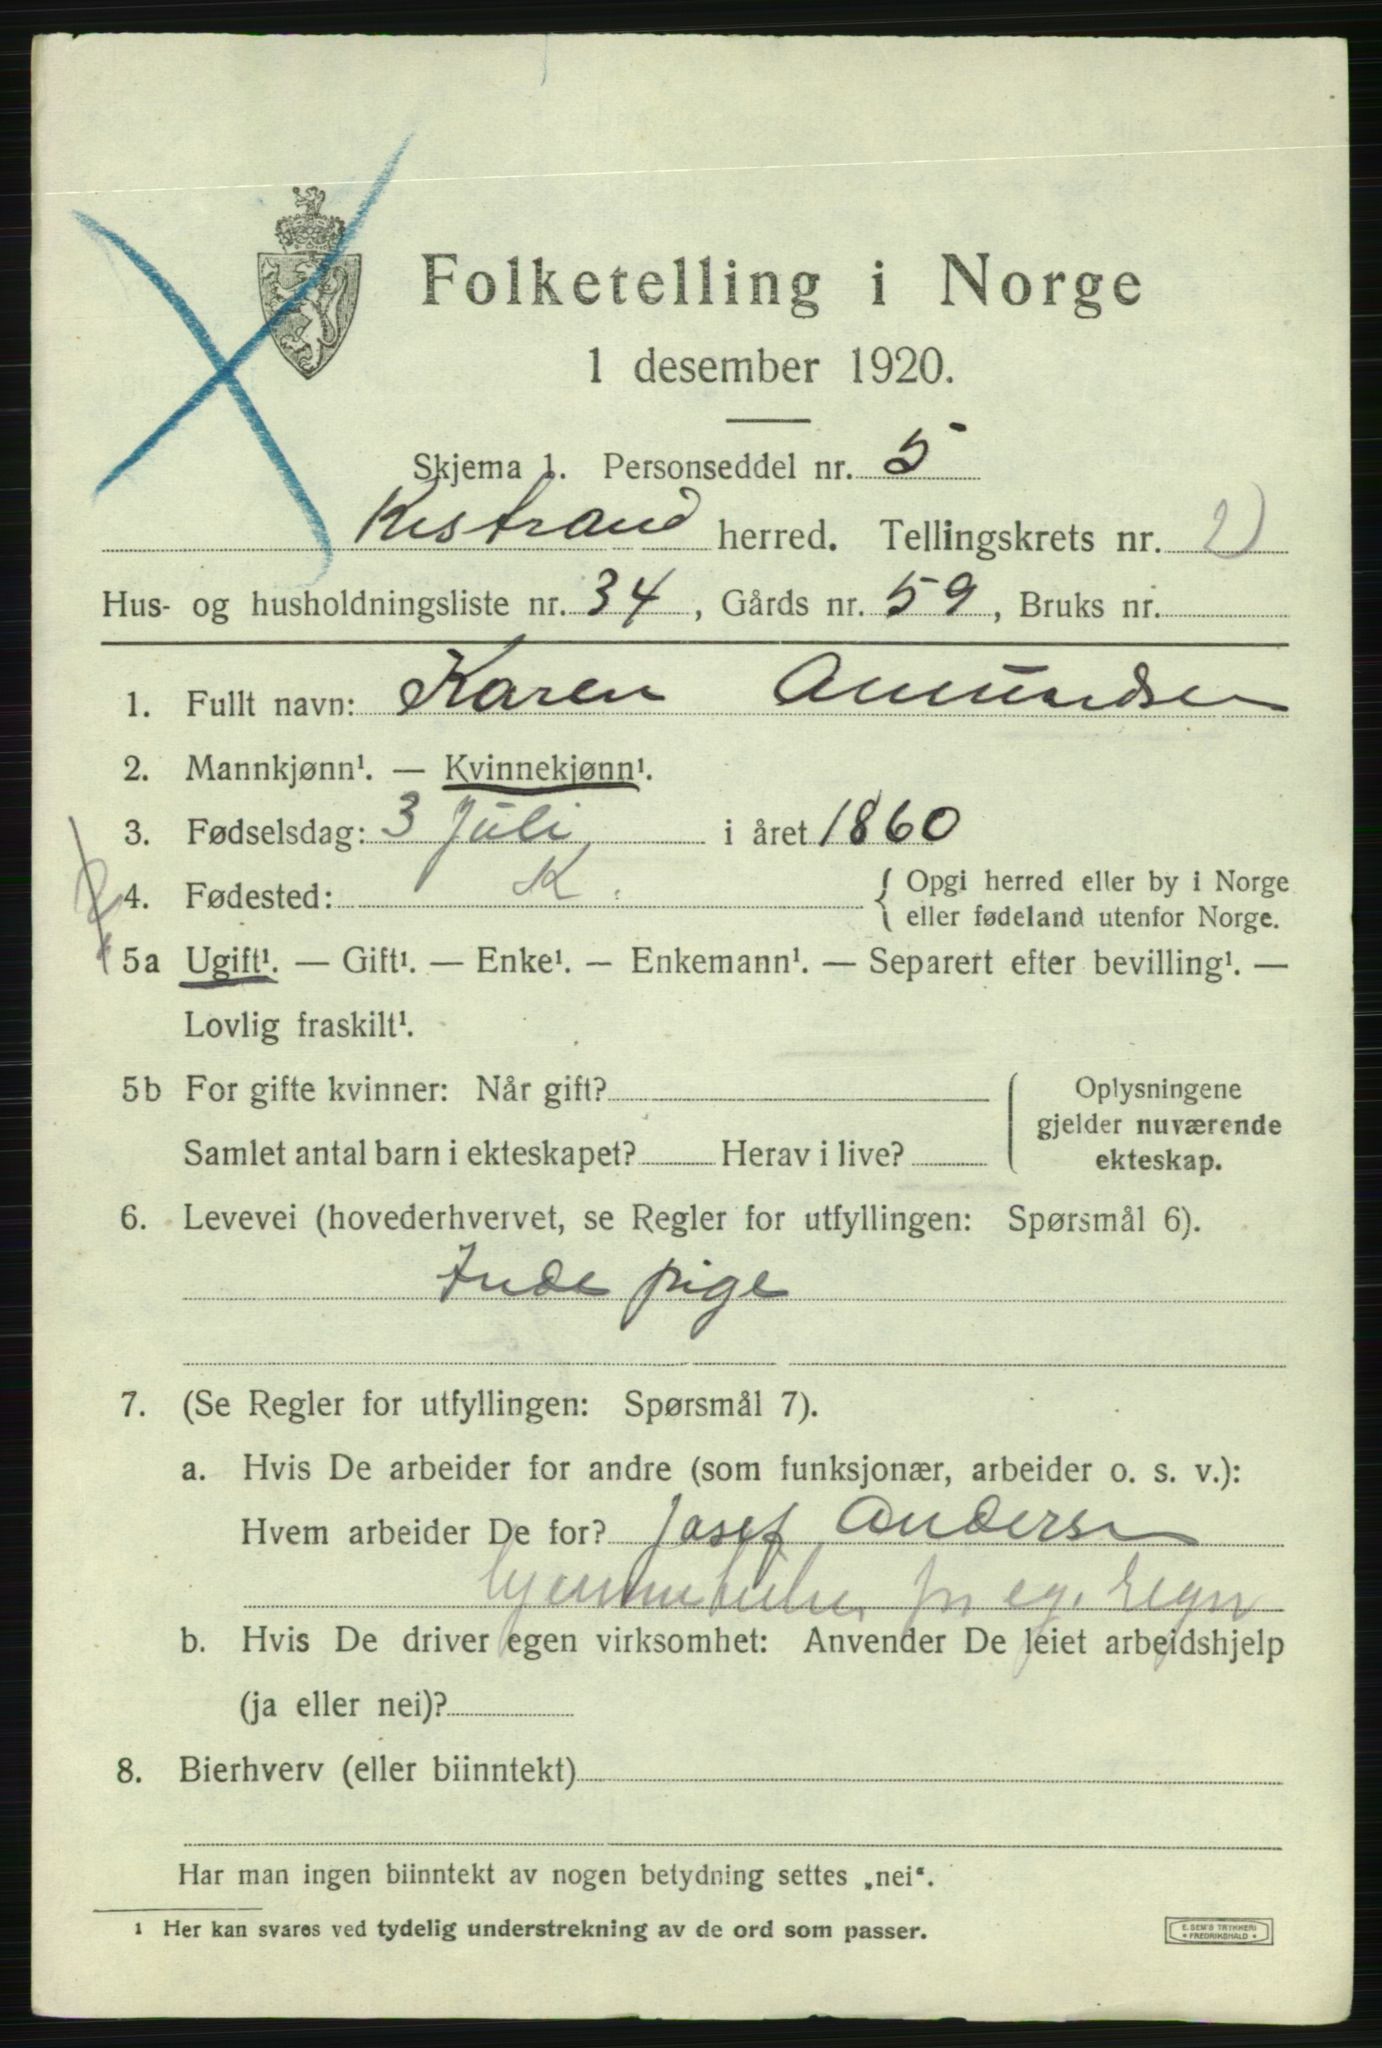 Folketelling i Norge
1 desember 1920.
Skjema 1. Personseddel nr. 5
Kistrand herred. Tellingskrets nr. 2)
Hus- og husholdningsliste nr. 34, Gårds nr. 59, Bruks nr.
1. Fullt navn: Karen Amundsen
2. Mannkjønn¹. — Kvinnekjønn¹.
3. Fødselsdag: 3 Juli i året 1860
4. Fødested: K. { Opgi herred eller by i Norge
eller fødeland utenfor Norge.
5a Ugift¹. — Gift¹. — Enke¹. — Enkemann¹. — Separert efter bevilling¹. —
Lovlig fraskilt¹.
5b For gifte kvinner: Når gift?
Samlet antal barn i ekteskapet? Herav i live?
Oplysningene
gjelder nuværende
ekteskap.
6. Levevei (hovederhvervet, se Regler for utfyllingen: Spørsmål 6).
Inde pige
7. (Se Regler for utfyllingen: Spørsmål 7).
a. Hvis De arbeider for andre (som funksjonær, arbeider o. s. v.):
Hvem arbeider De for? Josef Andersen
for eg. regn
b. Hvis De driver egen virksomhet: Anvender De leiet arbeidshjelp
(ja eller nei)?
8. Bierhverv (eller biinntekt)
Har man ingen biinntekt av nogen betydning settes „nei“.
1 Her kan svares ved tydelig understrekning av de ord som passer.
E. SEM'S TRYKKERI
FREDRIKSHALD